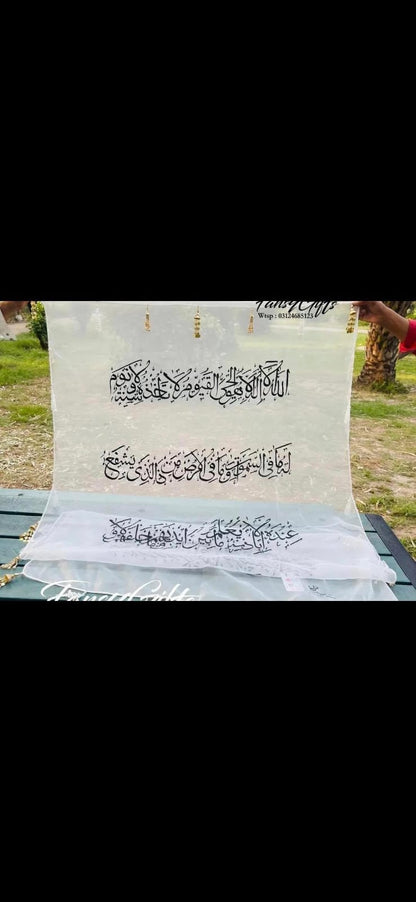 Fansy Gifts
Wtsp : 03124685123
الله لا إله إلا هو الحي القيوم لا تأخذه سنة ولا نوم
له ما في السموت وما في الأرض من ذا الذي يشفع
عنده إلا بإذنه يعلم ما بين أيديهم وما خلفهم ولا
Fansy Gifts